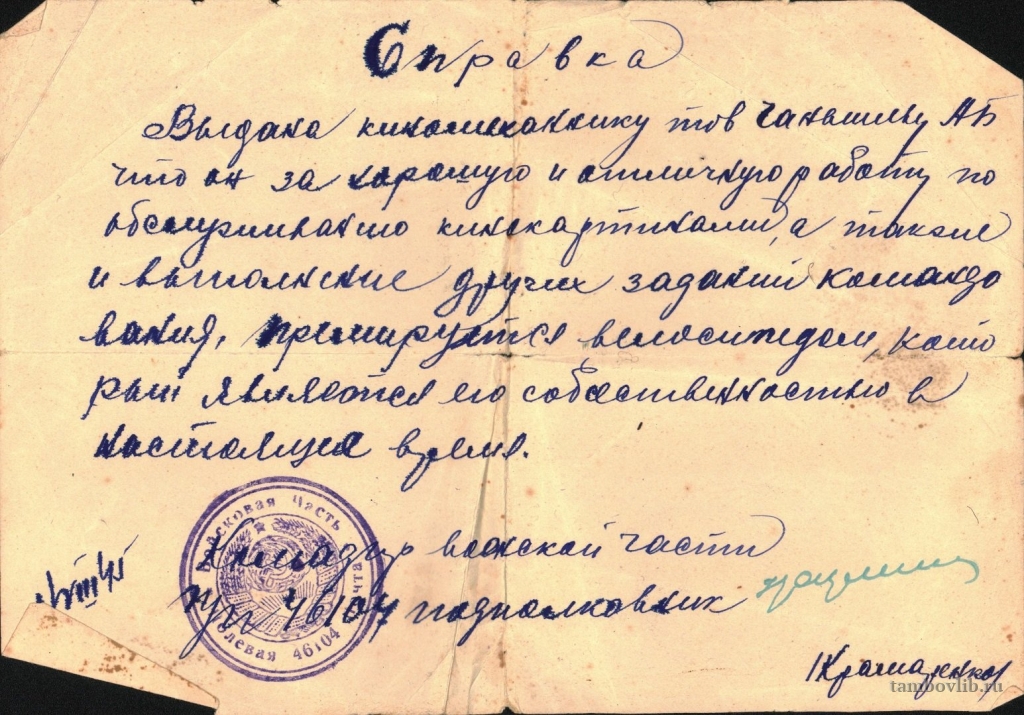 Справка
Выдана киномеханику тов Чанышиву АБ
что он за хорошую и отличную работу по
обслуживанию кинокартинами, а также
и выполнение других заданий командо
вания, премируется велосипедом, кото
рый является его собственностью в
настоящее время.
Командир воинской части
пп 46104 подполковник
Войсковая часть полевая почта 46104
/Крамаренко/
tambovlib.ru